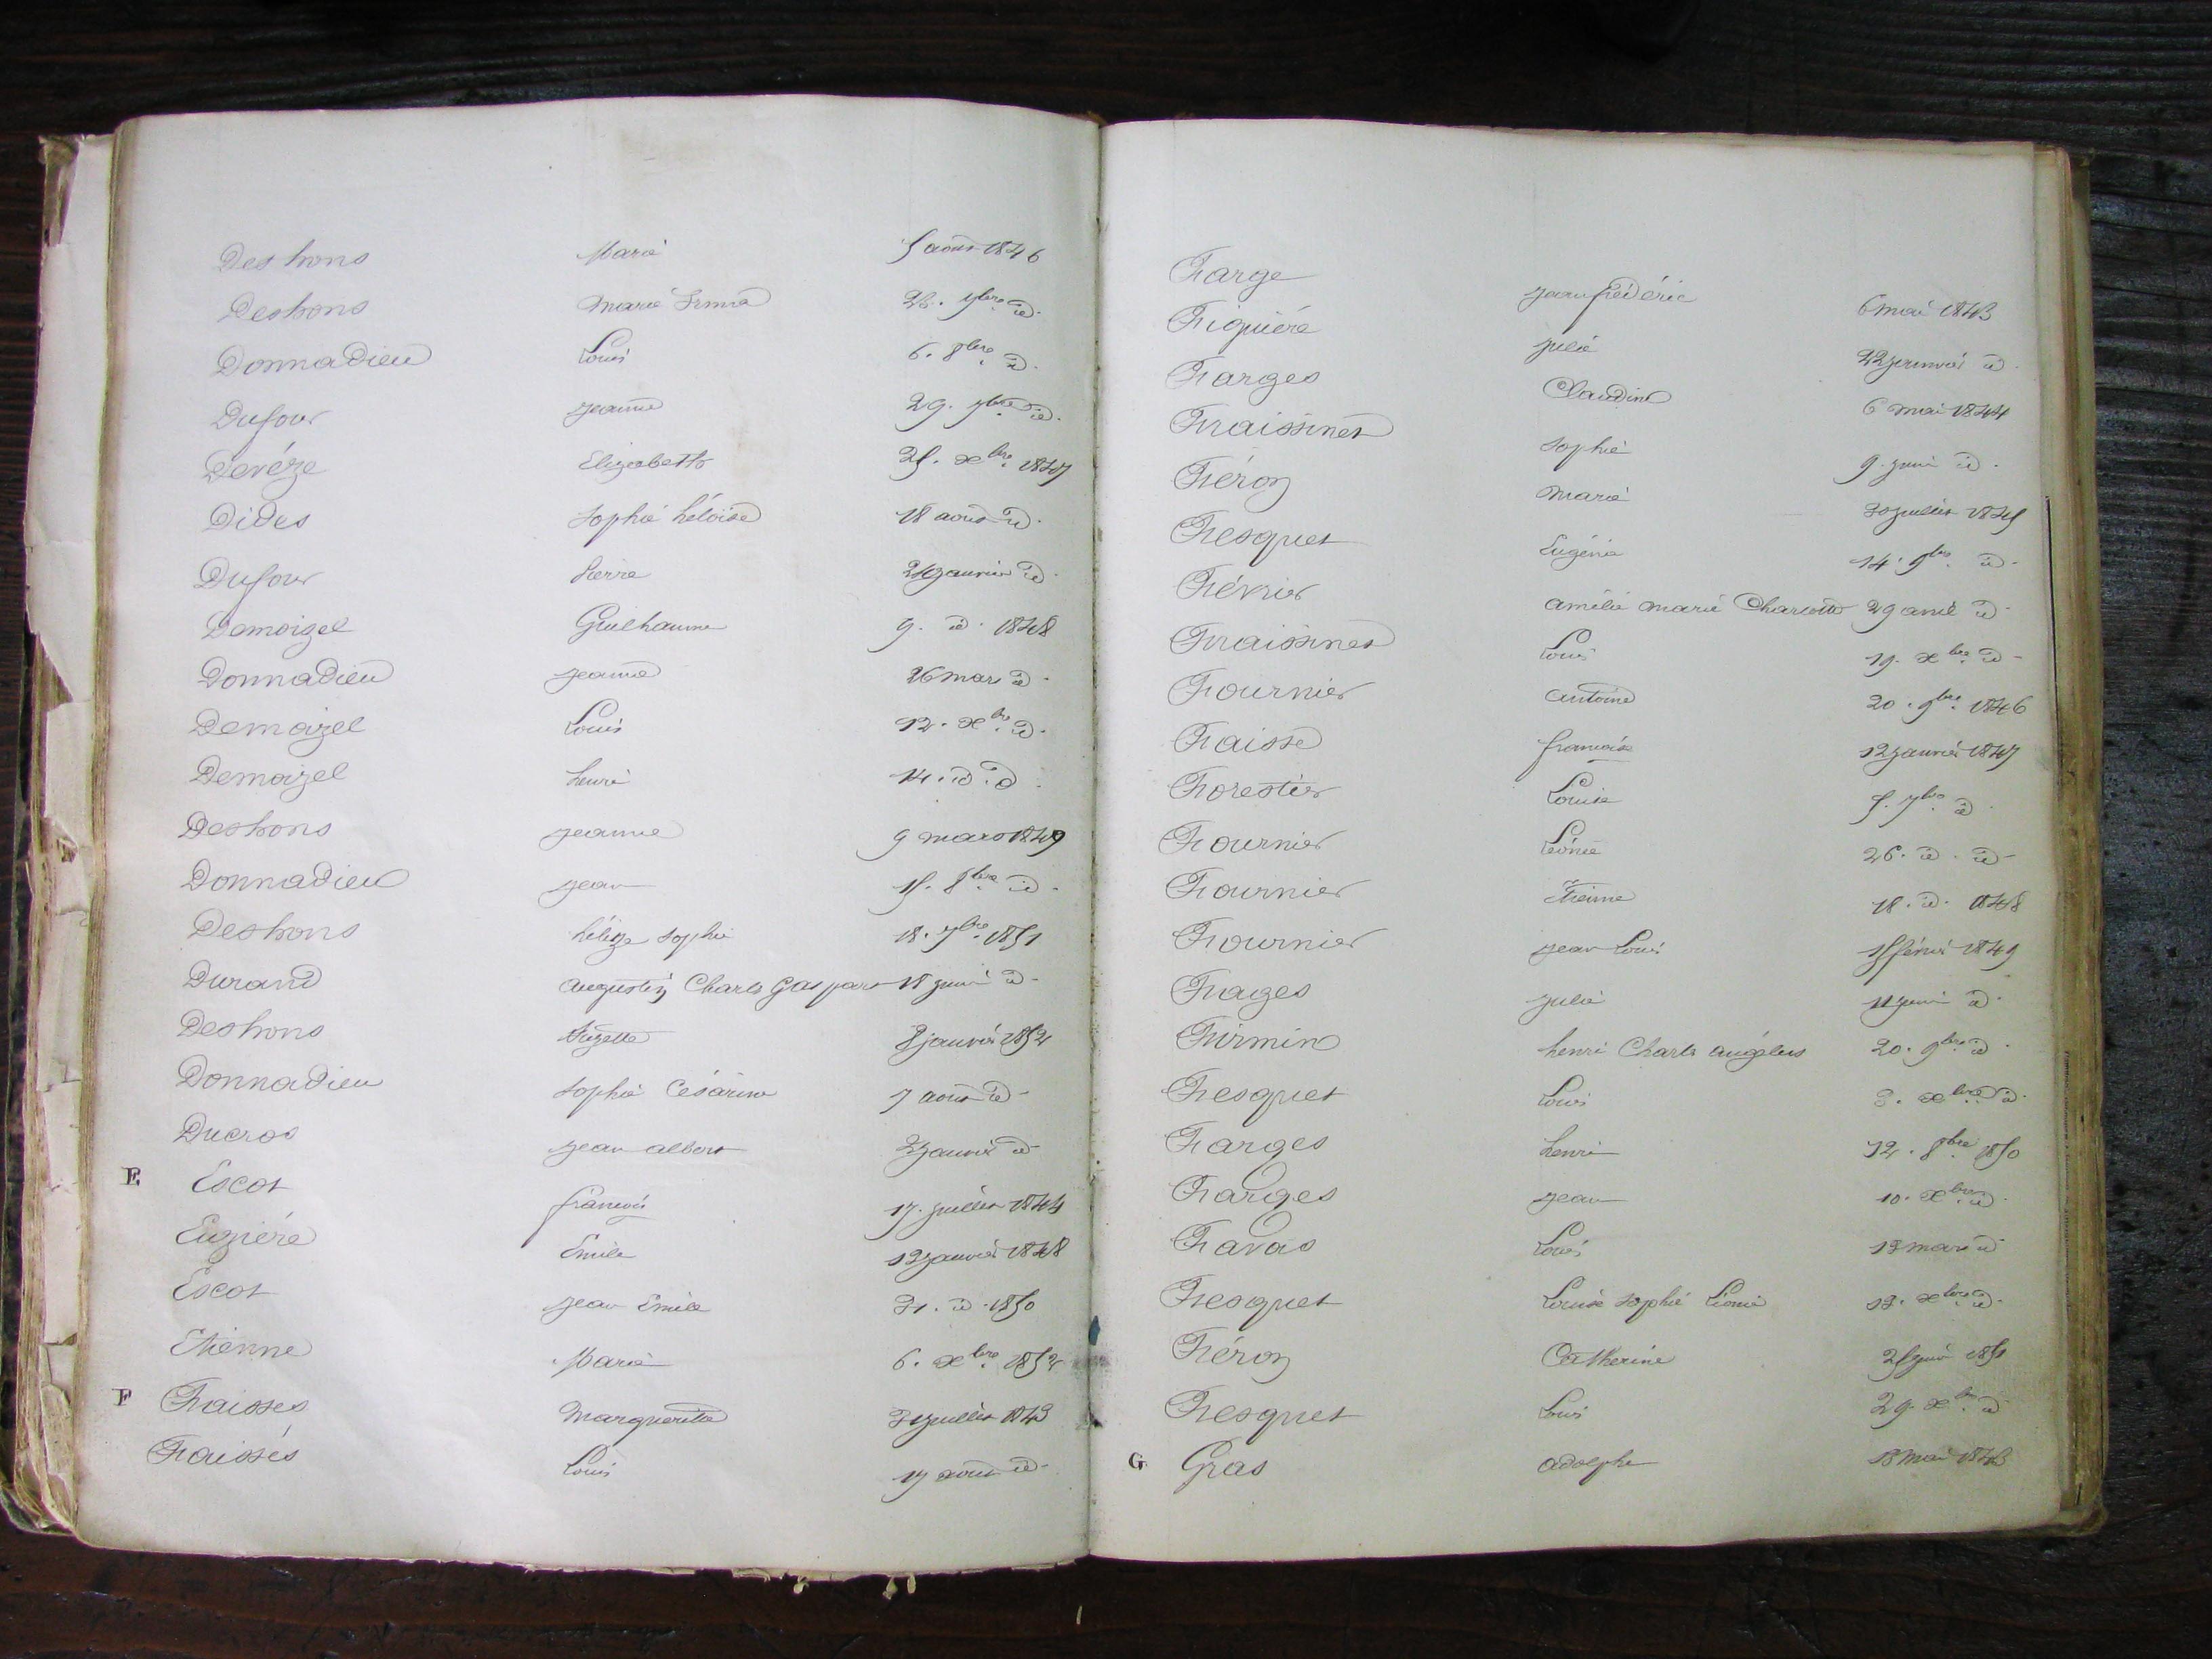 Deshons Marie 5 août 1846
Deshons Marie Irma 28. 7bre id.
Donnadieu Louis 6. 8bre id.
Dufour jeanne 29. 7bre id.
Devéze Elizabeth 25. xbre 1847
Dides Sophie héloïse 18 août id.
Dufour Pierre 24 janvier id.
Demoizel Guilhaume 9. id. 1848
Donnadieu jeanne 26 mars id.
Demaizel Louis 12. xbre id.
Demaizel henri 14. id. id.
Deshons jeanne 9 mars 1849
Donnadieu jean 15. 8bre id.
Deshons Sophie 18. 7bre 1851
Durand augustin Charles Gaspard 18 juin id.
Deshons Suzette 8 janvier 1852
Donnadieu Sophie Césarine 7 août id.
Ducros jean albert janvier id.
E Escot françois 17. juillet 1844
Euzière Emile 12 janvier 1848
Escot jean Emile 31. id. 1850
Etienne Marie 6. xbre 1852
F Faisses Margueritte juillet 1843
Faissés Louis 17 août id.
Farge jean frédéric 6 mai 1843
Figuiére julie 22 janvier id.
Farges Claudine 6 mai 1844
Fraissinet Sophie 9. juin id.
Féron Marie 30 juillet 1845
Fesquet Eugénie 14. 9bre id.
Février amélie marie Charlotte 29 avril id.
Fraissinet Louis 19. xbre id.
Fournier antoine 20. 9bre 1846
Faisse françoise 12 janvier 1847
Forestier Louise 5. 7bre id.
Fournier Léonie 26. id. id.
Fournier Etienne 18. id. 1848
Fournier jean Louis 15 février 1849
Fages julie 11 juin id.
Firmin henri Charles angélus 20. 9bre id.
Fesquet Louis 3. xbre id.
Farges henri 12. 8bre 1850
Farges jean 10. xbre id.
Favas Louis 13 mars id.
Fesquet Louise Sophie Léonie 13. xbre id.
Féron Catherine 25 juin 1851
Fesquet Louis 29. xbre id.
G Gras adolphe 18 mai 1843